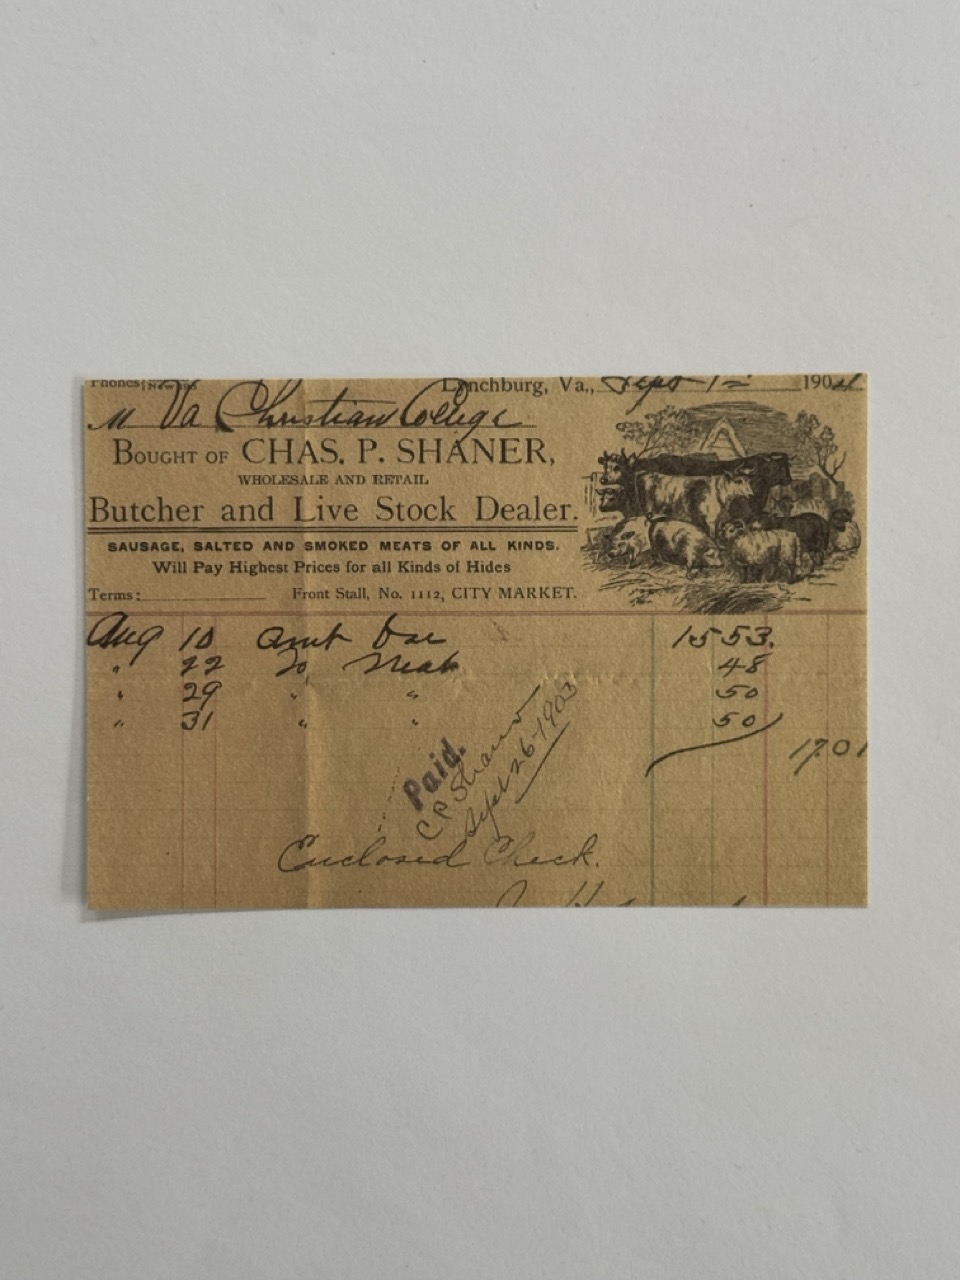 Phones:
Lynchburg, Va., Sept 1st 1904
M Va Christian College
BOUGHT OF CHAS. P. SHANER,
WHOLESALE AND RETAIL
Butcher and Live Stock Dealer.
SAUSAGE, SALTED AND SMOKED MEATS OF ALL KINDS.
Will Pay Highest Prices for all Kinds of Hides
Terms: Front Stall, No. 1112, CITY MARKET.
Aug 10 amt Due 15 53.
" 22 To Meat 48
" 29 " " 50
" 31 " " 50
17.01
Paid.
C P Shaner
Sept 26-1903
Enclosed Check.